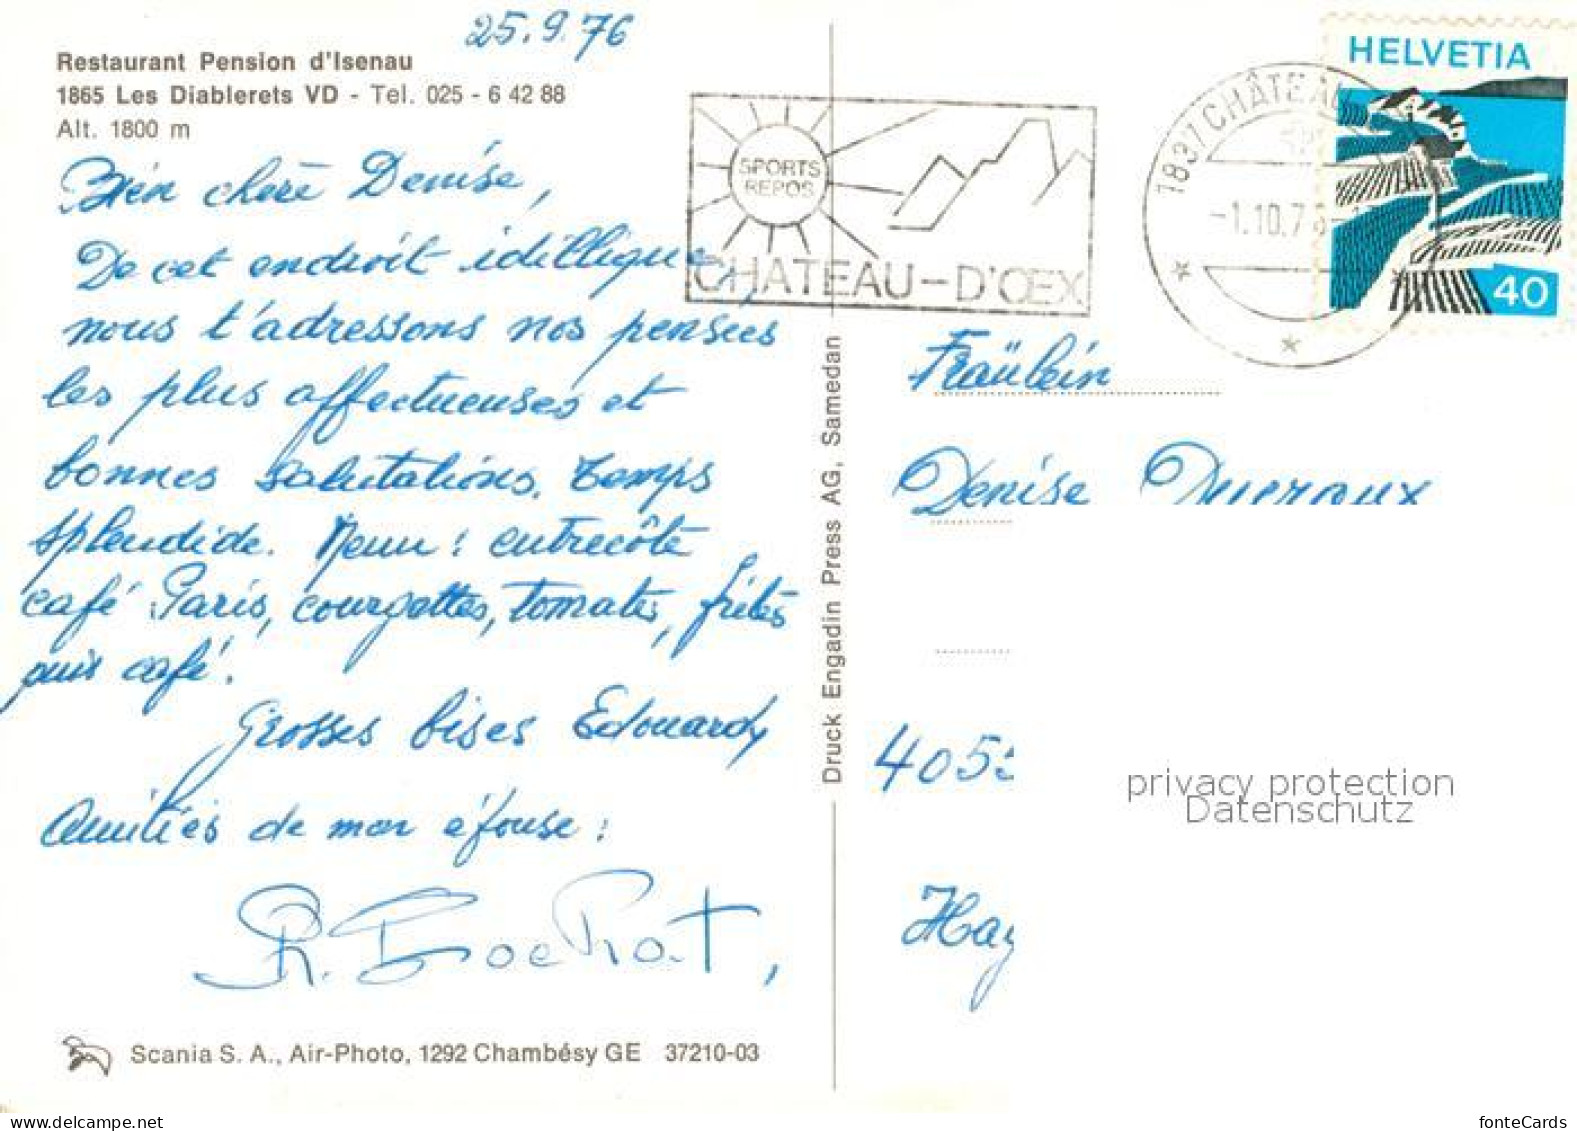 25.9.76
Restaurant Pension d'Isenau
1865 Les Diablerets VD - Tel. 025 - 6 42 88
Alt. 1800 m
Bien chère Denise,
De cet endroit idillique,
nous t'adressons nos pensées
les plus affectueuses et
bonnes salutations. Temps
splendide. Menu : entrecôte
café Paris, courgettes, tomates, frites
puis café.
Grosses bises Edouardy
Amitiés de mon épouse :
Scania S. A., Air-Photo, 1292 Chambésy GE 37210-03
Druck Engadin Press AG, Samedan
SPORTS
REPOS
CHATEAU-D'ŒX
1837 CHÂTEAU
-1.10.7
HELVETIA
40
Fräulein
Denise
405
Hag
privacy protection
Datenschutz
www.delcampe.net
fonteCards